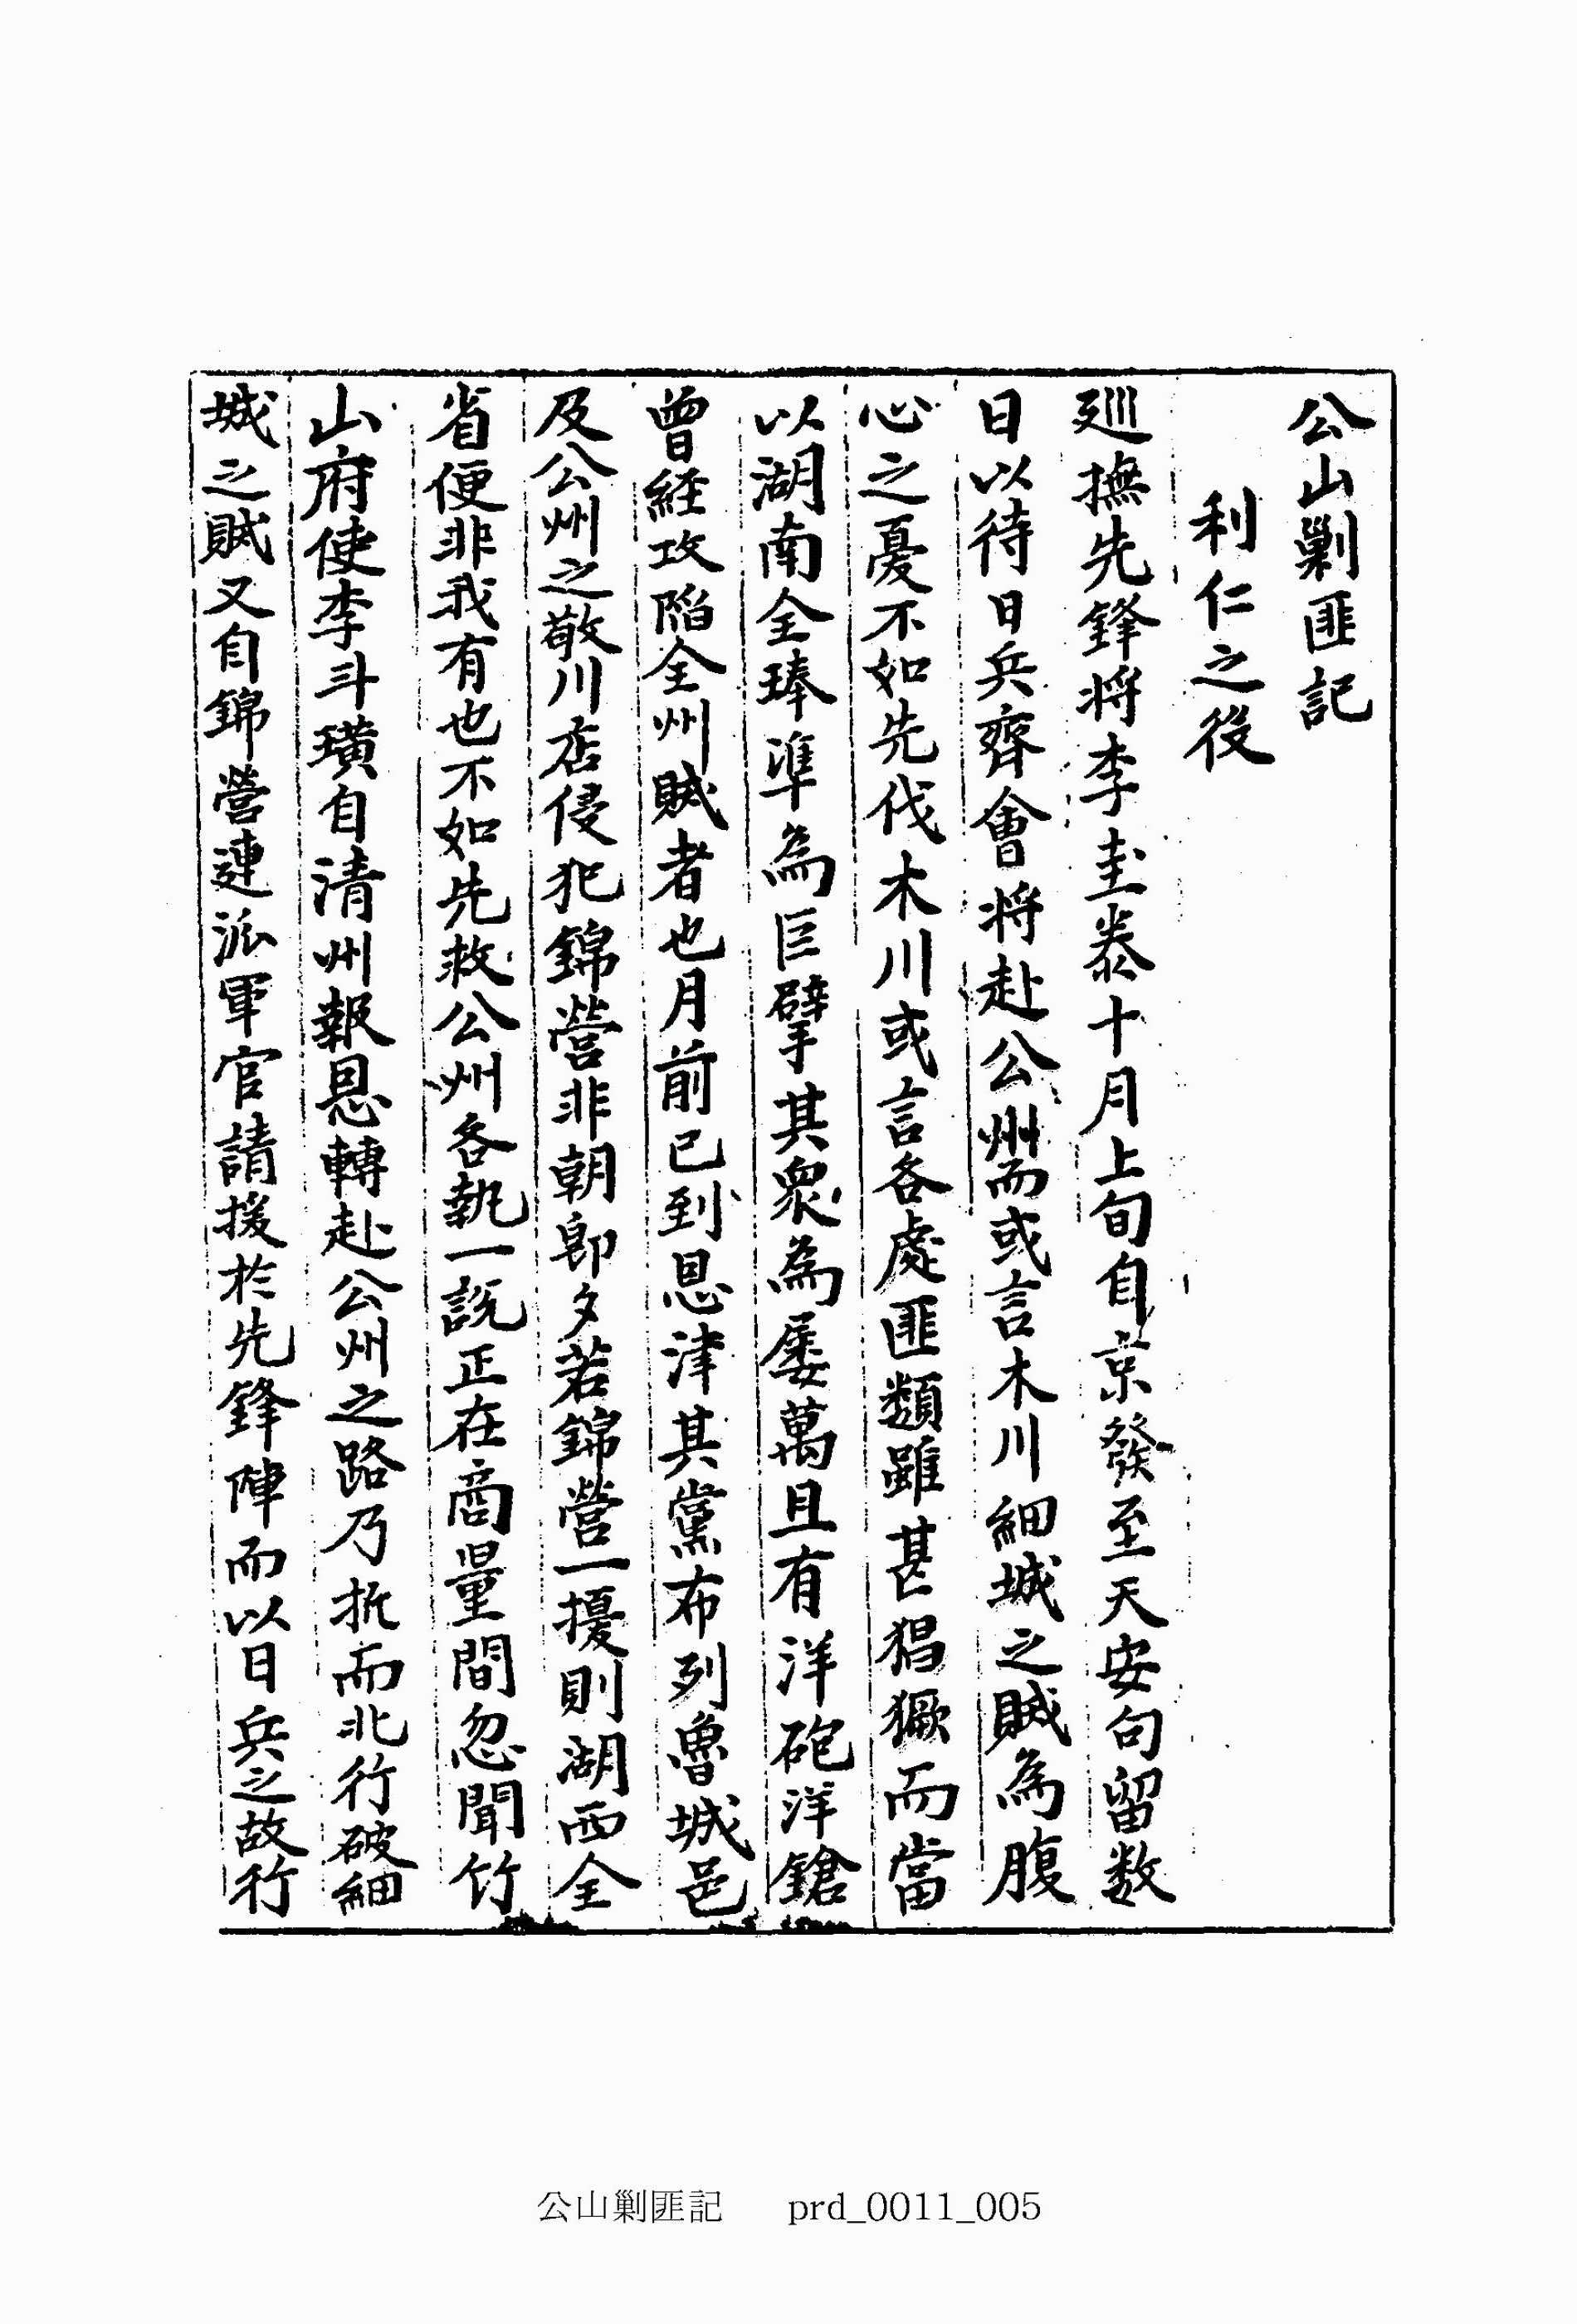 公山剿匪記
利仁之役
廵撫先鋒將李圭泰十月上旬自京發至天安句留数
日以待日兵齊會將赴公州而或言木川細城之賊為腹
心之憂不如先伐木川或言各處匪類雖甚猖獗而當
以湖南全琫準為巨擘其衆為屢萬且有洋砲洋鎗
曾経攻陷全州賊者也月前已到恩津其黨布列魯城邑
及公州之敬川店侵犯錦營非朝郎夕若錦營一擾則湖西全
省便非我有也不如先救公州各執一説正在商量間忽聞竹
山府使李斗璜自清州報恩轉赴公州之路乃折而北行破細
城之賊又自錦營連派軍官請援於先鋒陣而以日兵之故行
公山剿匪記 prd_0011_005